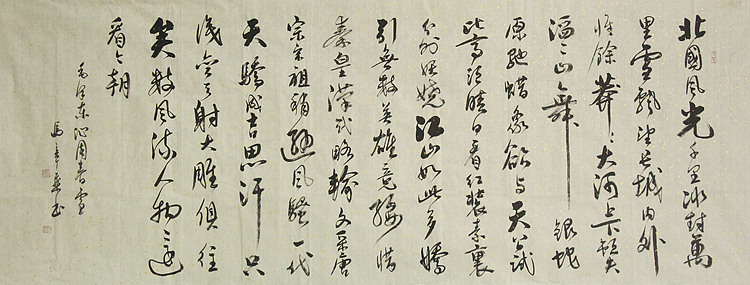 北國風光千里冰封萬
里雪飄望長城内外
惟餘莽々大河上下頓失
滔々山舞銀蛇
原馳蜡象欲与天公試
比高須晴日看红装素裹
分外妖嬈江山如此多嬌
引無數英雄竞折腰惜
秦皇漢武略輸文采唐
宗宋祖稍遜風騷一代
天驕成吉思汗只
識弯弓射大雕俱往
矣數風流人物還
看今朝
毛澤東沁園春雪